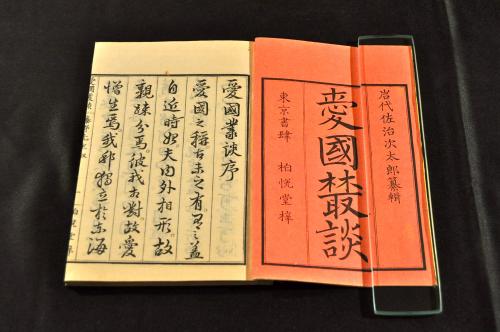 岩代佐治次太郎纂輯
愛國叢談
東京書肆 柏悦堂梓
愛國叢談序
愛國之稱古未之有有之蓋
自近時始夫内外相形故
親疎分焉彼我相對故愛
憎生焉我邦獨立於东海